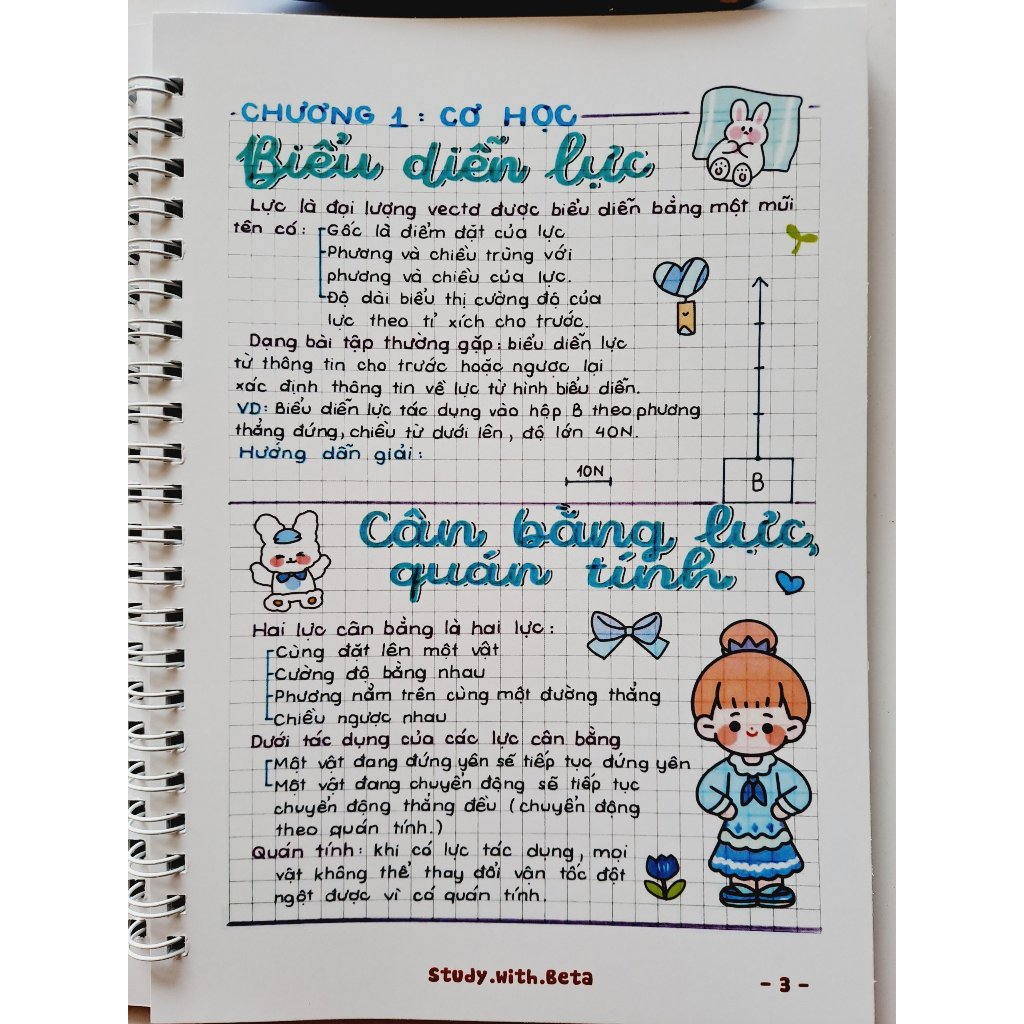 CHƯƠNG 1: CƠ HỌC
Biểu diễn lực
Lực là đại lượng vectơ được biểu diễn bằng một mũi
tên có: Gốc là điểm đặt của lực
Phương và chiều trùng với
phương và chiều của lực.
Độ dài biểu thị cường độ của
lực theo tỉ xích cho trước.
Dạng bài tập thường gặp: biểu diễn lực
từ thông tin cho trước hoặc ngược lại
xác định thông tin về lực từ hình biểu diễn.
VD: Biểu diễn lực tác dụng vào hộp B theo phương
thẳng đứng, chiều từ dưới lên, độ lớn 40N.
Hướng dẫn giải:
10N
B
Cân bằng lực,
quán tính
Hai lực cân bằng là hai lực:
Cùng đặt lên một vật
Cường độ bằng nhau
Phương nằm trên cùng một đường thẳng
Chiều ngược nhau
Dưới tác dụng của các lực cân bằng
Một vật đang đứng yên sẽ tiếp tục đứng yên
Một vật đang chuyển động sẽ tiếp tục
chuyển động thẳng đều (chuyển động
theo quán tính.)
Quán tính: khi có lực tác dụng, mọi
vật không thể thay đổi vận tốc đột
ngột được vì có quán tính.
Study.with.Beta
- 3 -